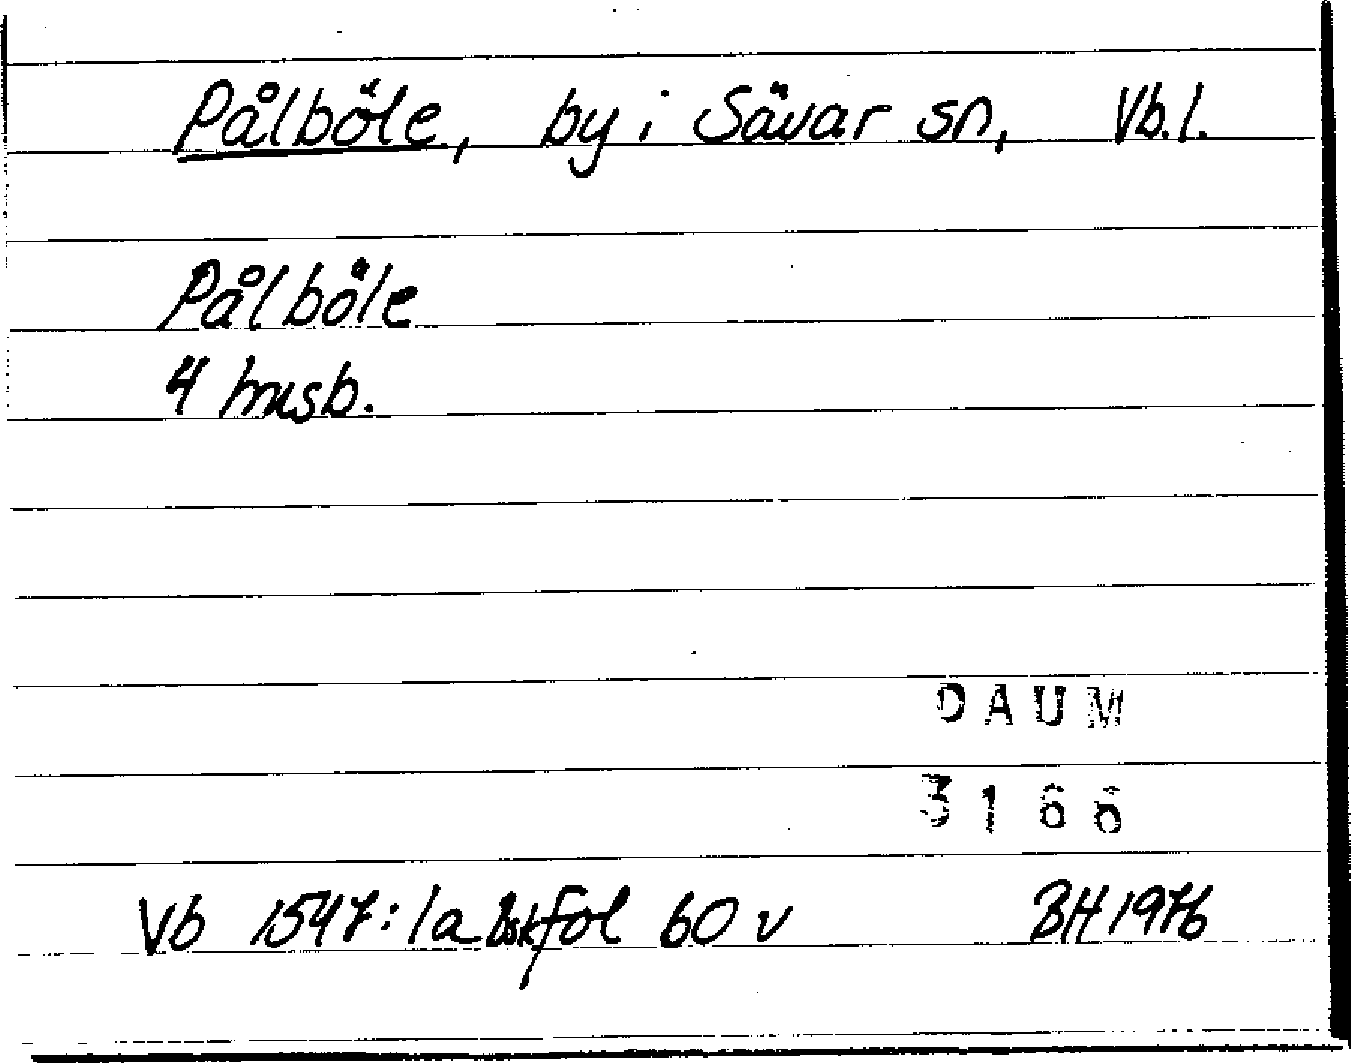 Pålböle, by i Sävar sn, Vb.l.
Pålböle
4 husb.
DAUM
3166
Vb 1547:1a Bsk fol 60 v BH 1976